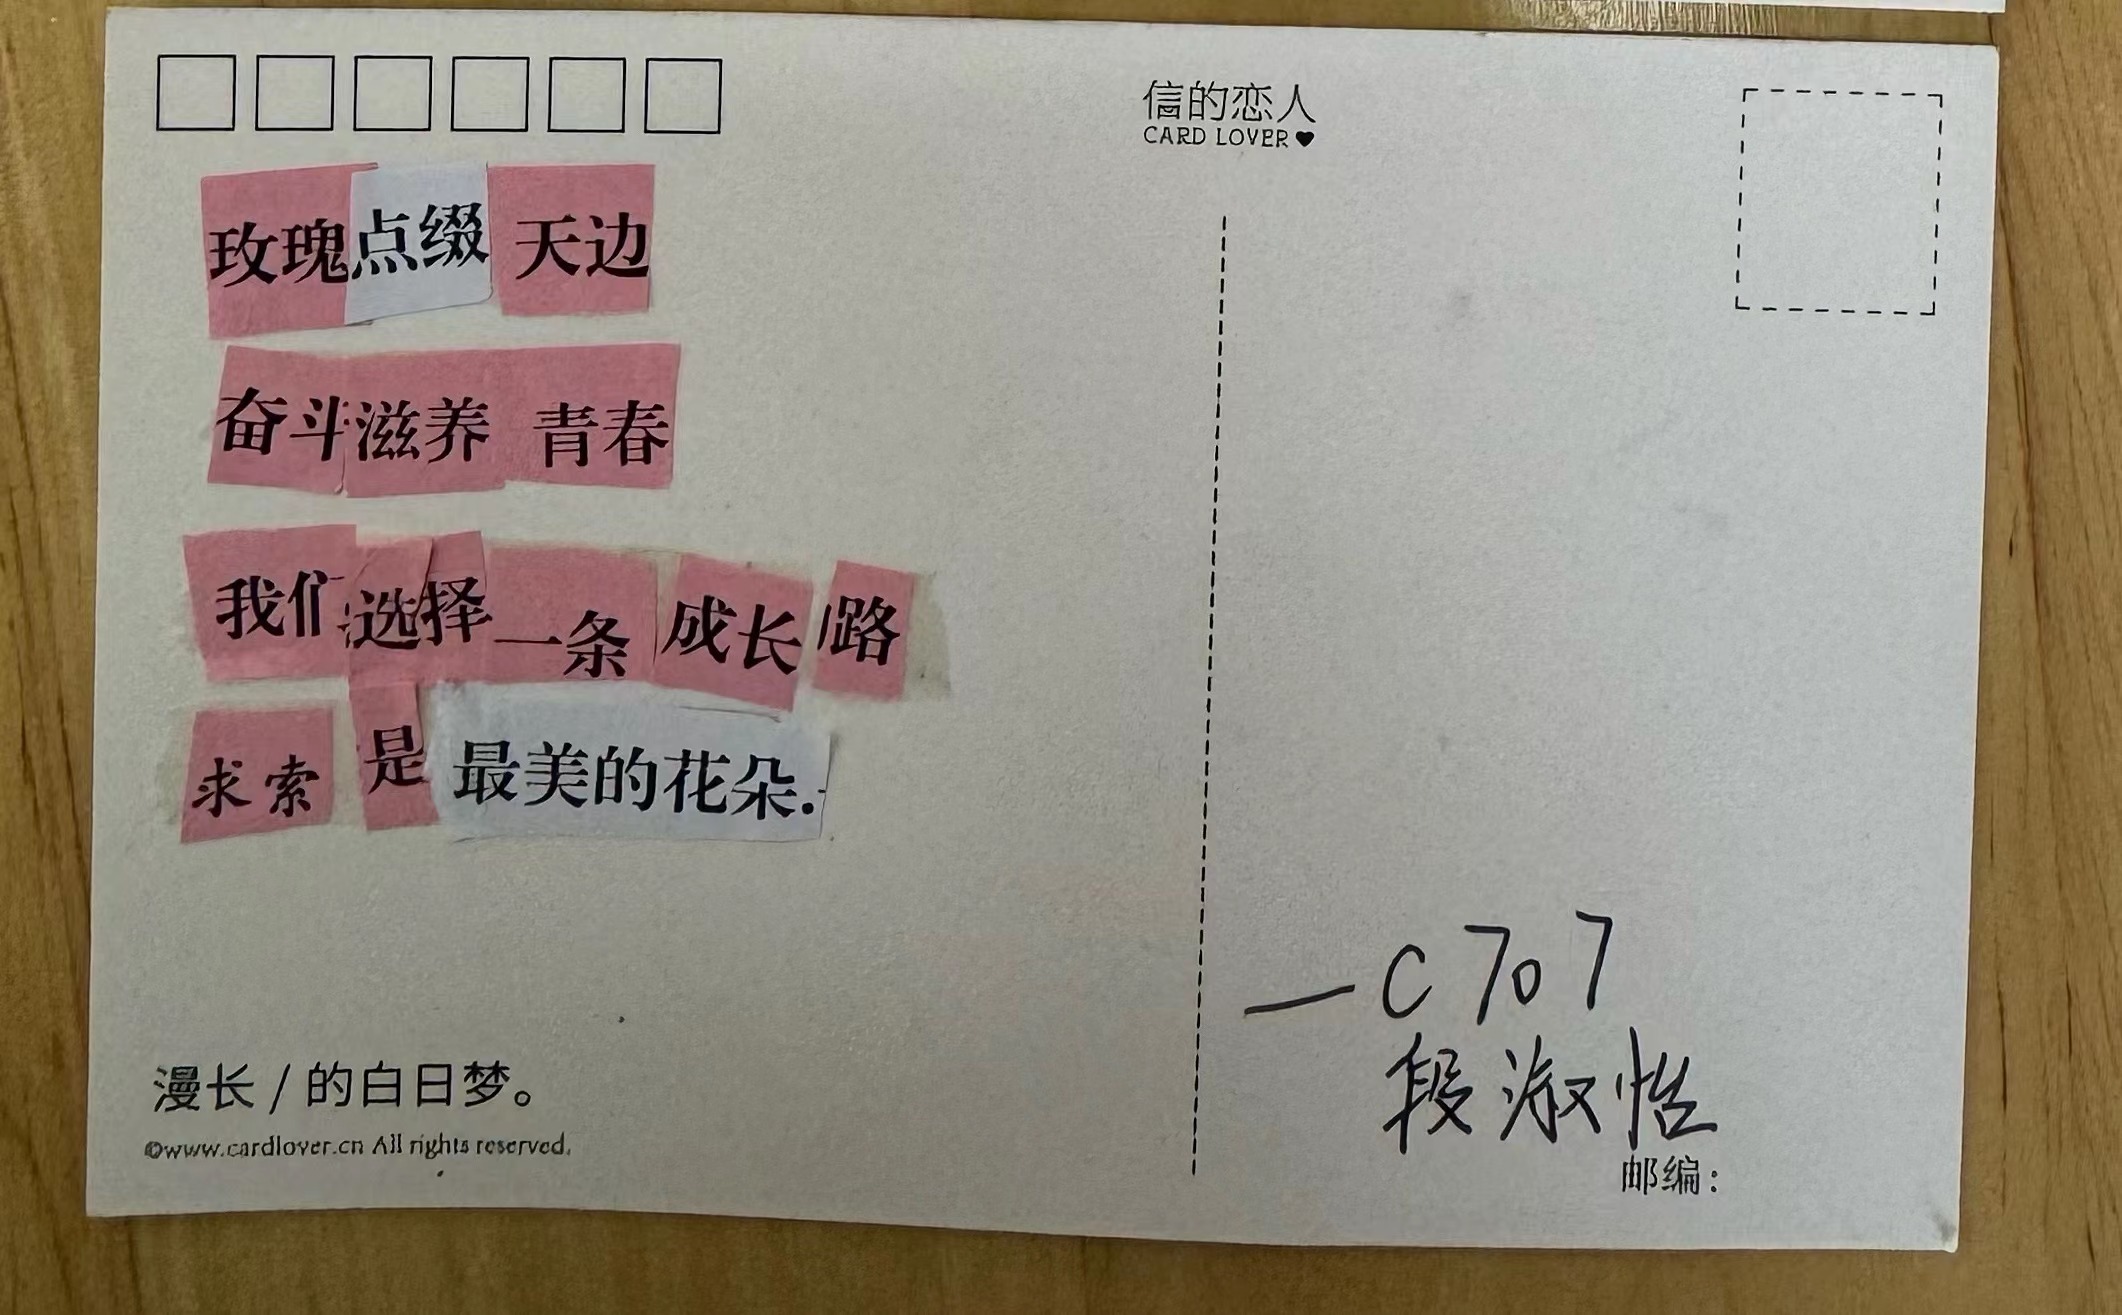 信的恋人
CARD LOVER
玫瑰点缀 天边
奋斗滋养 青春
我们选择一条 成长 路
求索 是 最美的花朵.
—C707
段淑怡
漫长 / 的白日梦。
©www.cardlover.cn All rights reserved.
邮编：